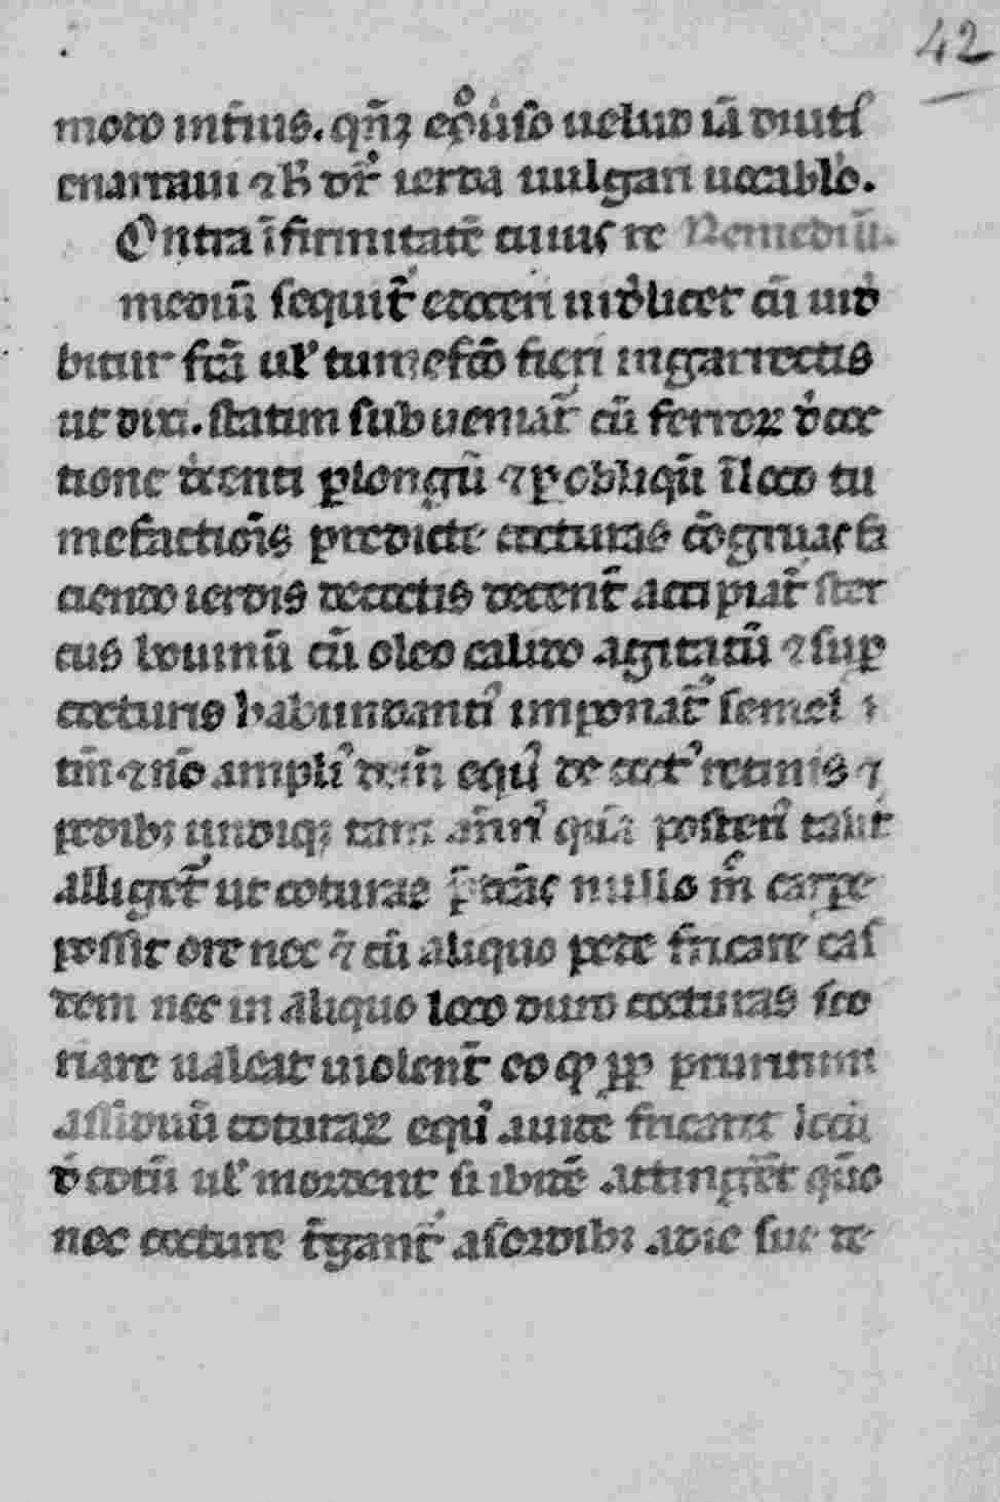 42
modo int̄ius. qn̄qꝫ eq̊ ūiso uelud iā diuiti⁹
enarraui ⁊ h̄ dr̄ ierda uulgari uocablo.
Ontra ī firmitatē cuius re Remediū.
mediū sequit̄ et ceteri uidꝫ licet cū uid
bitur fcā ul' tumefcō fieri in garrectis
ut dixi. statim subueniat̄ cū ferroꝝ d'coc
tione d'centi ꝑ longū ⁊ ꝑ obliqū ī loco tu
mefactiōis predicte cocturas cōgruas fa
ciendo ierdis decoctis decent̄ accipiat̄ ster
cus bouinū cū oleo calido agitatū ⁊ suꝑ
cocturis habundant' imponat̄ semel
tm̄ ⁊ nō ampli' dein̄ equ' de coct' retinis ⁊
pedibꝫ undiqꝫ tam an̄ri' quā posteri' talit̄
alliget̄ ut cocturas p̄dcās nullo m̄ carpe
possit ore nec ⁊ cū aliquo pede fricare eas
dem nec in aliquo loco duro cocturas sco
riare ualeat uiolent̄ eo ꝙ ꝓp pruritum
assiduū cocturaꝝ equ' auide fricaret locū
d' coctū ul' morderet si ibidē attinger̄t qn̄o
nec cocture t̄gant̄ a sordibꝫ a die sue de